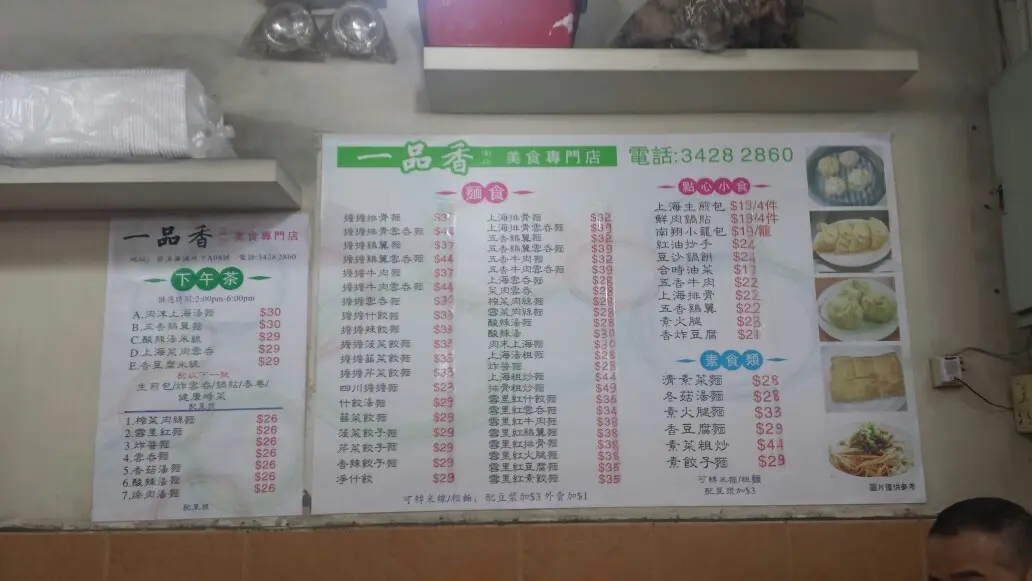 一品香 美食專門店 電話:3428 2860
麵食
擔擔排骨麵
擔擔排骨雲吞麵
擔擔鷄翼麵 $37
擔擔鷄翼雲吞麵 $44
擔擔牛肉麵
擔擔牛肉雲吞麵
擔擔雲吞麵
擔擔什餃麵
擔擔辣餃麵
擔擔菠菜餃麵
擔擔韮菜餃麵
擔擔芹菜餃麵
四川擔擔麵
什餃湯麵 $29
韮菜餃麵 $29
菠菜餃子麵 $29
芹菜餃子麵 $29
香辣餃子麵 $29
凈什餃 $29
上海排骨麵 $32
上海排骨雲吞麵
五香鷄翼麵
五香鷄翼雲吞麵
五香牛肉麵 $32
五香牛肉雲吞麵
上海雲吞麵
菜肉雲吞
榨菜肉絲麵 $28
雪菜肉絲麵 $28
酸辣湯麵 $28
酸辣湯
肉末上海麵
上海湯粗麵 $28
炸醬麵 $28
上海粗炒麵 $44
排骨粗炒麵
雪里紅什餃麵
雪里紅雲吞麵
雪里紅牛肉麵
雪里紅鷄翼麵
雪里紅排骨麵
雪里紅火腿麵
雪里紅豆腐麵
雪里紅素餃麵
可轉米線/粗麵，配豆漿加$3 外賣加$1
點心小食
上海生煎包 $19/4件
鮮肉鍋貼 $19/4件
南翔小籠包 $19/籠
紅油炒手 $24
豆沙鍋餅 $24
合時油菜 $17
五香牛肉 $22
上海排骨 $22
五香鷄翼 $22
素火腿
香炸豆腐 $21
素食類
清素菜麵 $28
冬菇湯麵 $28
素火腿麵 $33
香豆腐麵 $29
素菜粗炒 $44
素餃子麵 $29
可轉米麵/粗麵
配豆漿加$3
圖片僅供參考
一品香 美食專門店
電話:3428 2860
下午茶
供應時間:2:00pm-6:00pm
A.肉沫上海湯麵 $30
B.五香鷄翼麵 $30
C.酸辣湯米線 $29
D.上海菜肉雲吞 $29
E.香豆腐米線 $29
配以下一款
生煎包/炸雲吞/鍋貼/春卷/
健康時菜
配豆漿
1.榨菜肉絲麵 $26
2.雪里紅麵 $26
3.炸醬麵 $26
4.雲吞麵 $26
5.香菇湯麵 $26
6.酸辣湯麵 $26
7.辣肉湯麵 $26
配豆漿